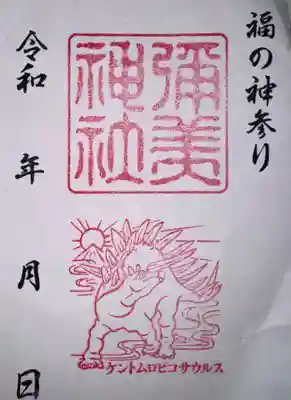 福の神参り
彌美
神社
令和 年 月 日
ケントムロヒコサウルス